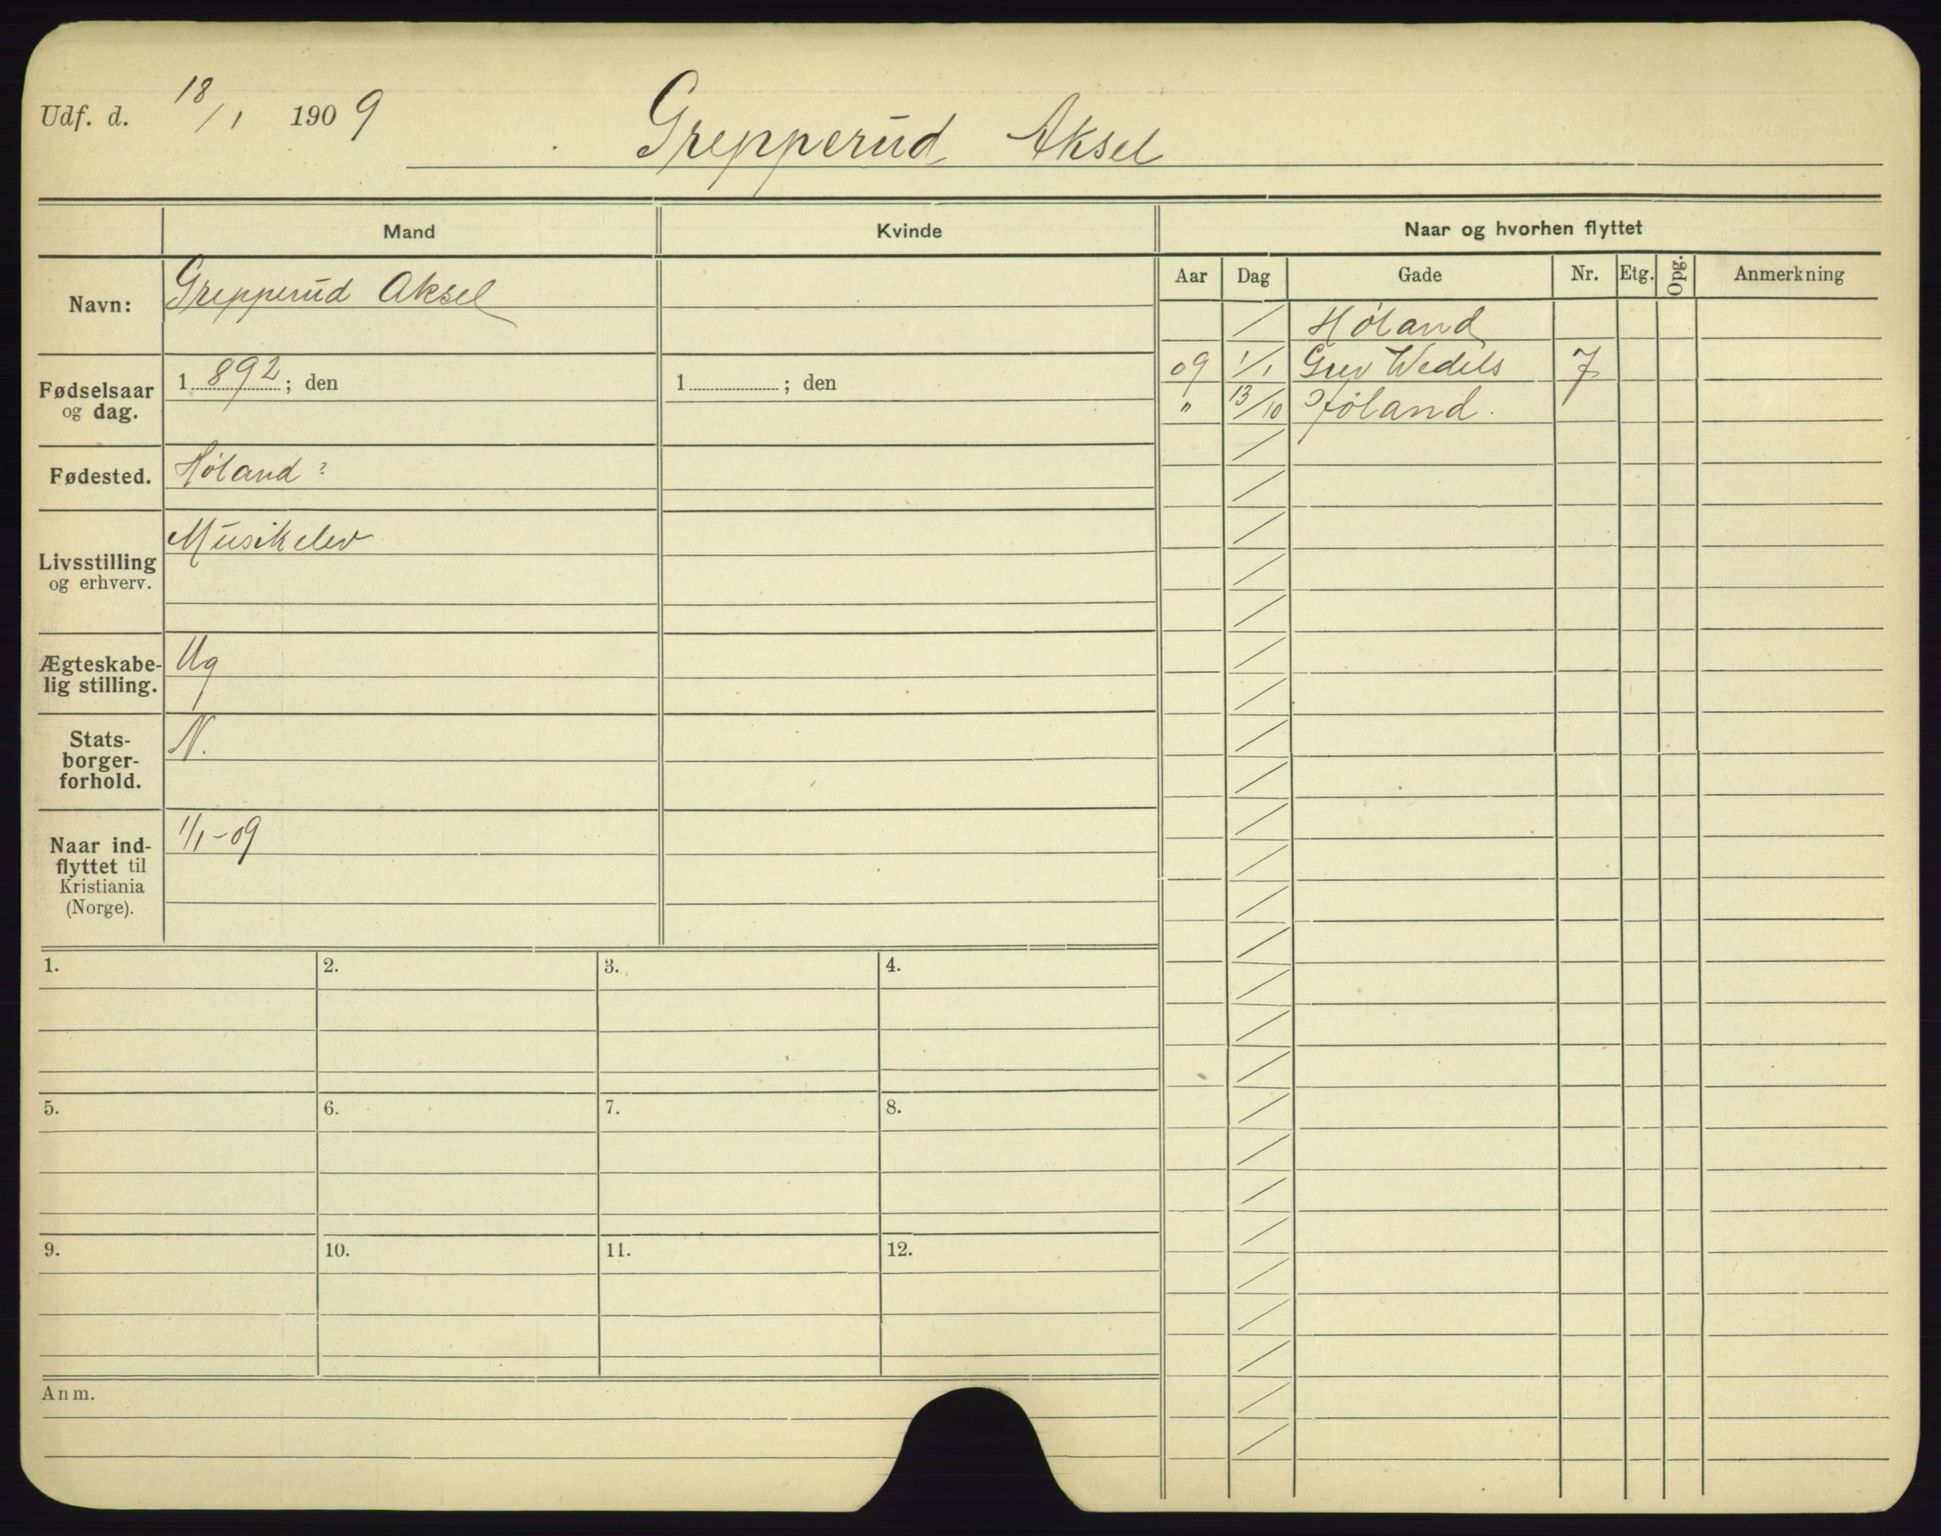 Udf. d. 18/1 1909
Grepperud Aksel
Mand
Kvinde
Naar og hvorhen flyttet
Aar
Dag
Gade
Nr.
Etg.
Opg.
Anmerkning
Navn:
Grepperud Aksel
Fødselsaar
og dag.
1892; den
1 ; den
Fødested.
Høland ?
Livsstilling
og erhverv.
Musikelev
Ægteskabe-
lig stilling.
Ug
Stats-
borger-
forhold.
N.
Naar ind-
flyttet til
Kristiania
(Norge).
1/1-09
Høland
09 1/1 Grev Wedels 7
" 13/10 Høland.
1.
2.
3.
4.
5.
6.
7.
8.
9.
10.
11.
12.
Anm.